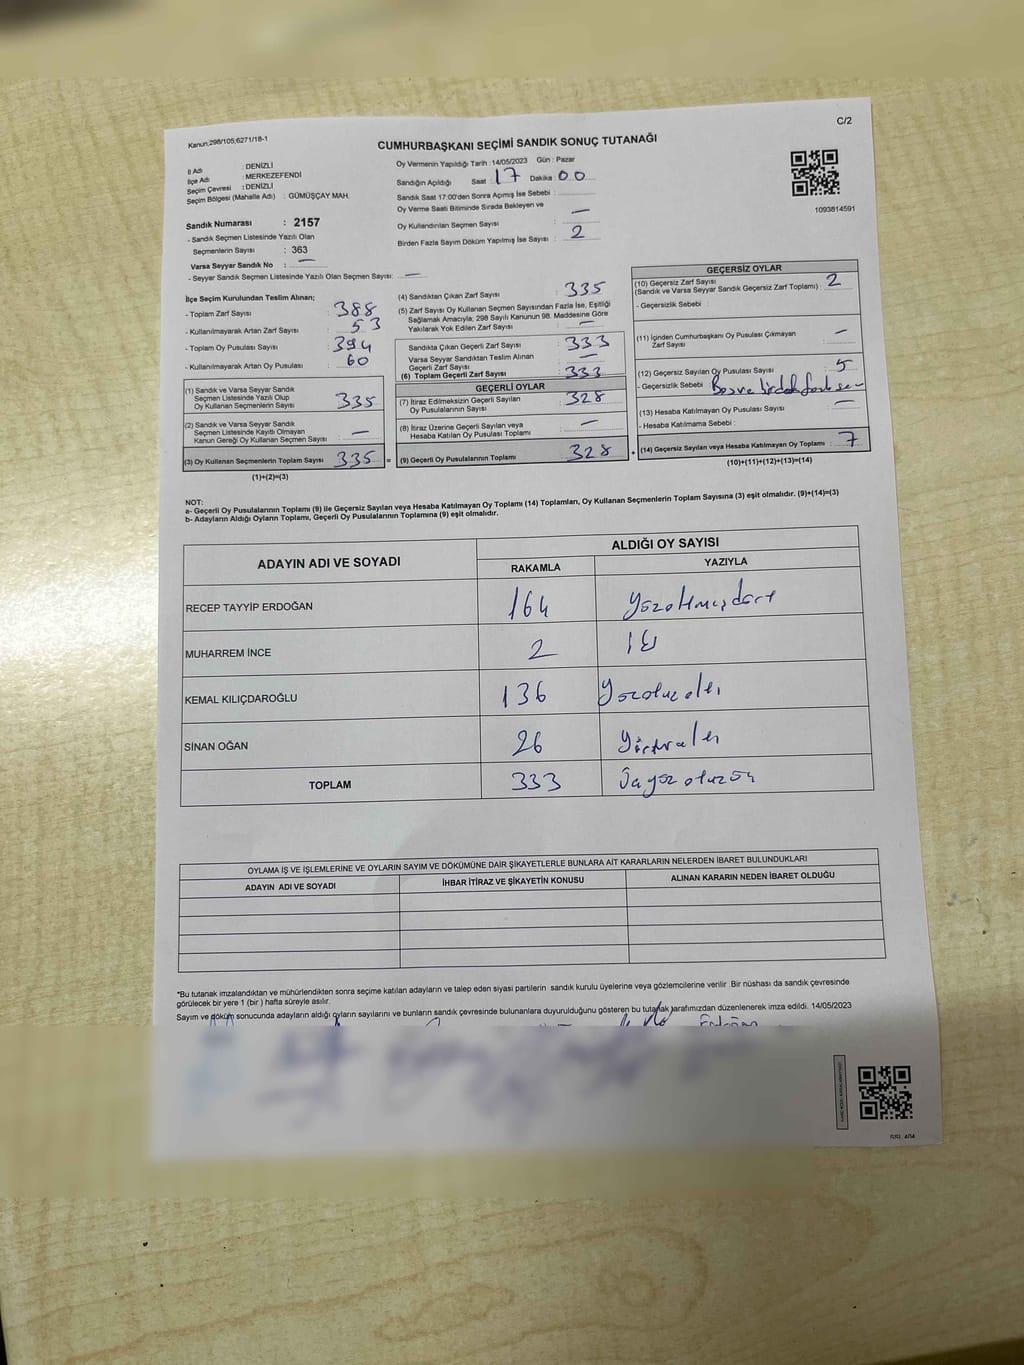 C/2
Kanun;298/105;6271/18-1
CUMHURBAŞKANI SEÇİMİ SANDIK SONUÇ TUTANAĞI
İl Adı : DENİZLİ
İlçe Adı : MERKEZEFENDİ
Seçim Çevresi : DENİZLİ
Seçim Bölgesi (Mahalle Adı) : GÜMÜŞÇAY MAH.
Sandık Numarası : 2157
- Sandık Seçmen Listesinde Yazılı Olan
Seçmenlerin Sayısı : 363
Varsa Seyyar Sandık No : —
- Seyyar Sandık Seçmen Listesinde Yazılı Olan Seçmen Sayısı: —
Oy Vermenin Yapıldığı Tarih : 14/05/2023 Gün : Pazar
Sandığın Açıldığı Saat : 17 Dakika : 00
Sandık Saat 17:00'den Sonra Açımış İse Sebebi :
Oy Verme Saati Bitiminde Sırada Bekleyen ve
Oy Kullandırılan Seçmen Sayısı : —
Birden Fazla Sayım Döküm Yapılmış İse Sayısı : 2
1093814591
İlçe Seçim Kurulundan Teslim Alınan;
- Toplam Zarf Sayısı : 388
- Kullanılmayarak Artan Zarf Sayısı : 53
- Toplam Oy Pusulası Sayısı : 394
- Kullanılmayarak Artan Oy Pusulası : 60
(1) Sandık ve Varsa Seyyar Sandık
Seçmen Listesinde Yazılı Olup
Oy Kullanan Seçmenlerin Sayısı : 335
(2) Sandık ve Varsa Seyyar Sandık
Seçmen Listesinde Kayıtlı Olmayan
Kanun Gereği Oy Kullanan Seçmen Sayısı : —
(3) Oy Kullanan Seçmenlerin Toplam Sayısı : 335
(1)+(2)=(3)
(4) Sandıktan Çıkan Zarf Sayısı : 335
(5) Zarf Sayısı Oy Kullanan Seçmen Sayısından Fazla İse, Eşitliği
Sağlamak Amacıyla; 298 Sayılı Kanunun 98. Maddesine Göre
Yakılarak Yok Edilen Zarf Sayısı : —
Sandıkta Çıkan Geçerli Zarf Sayısı : 333
Varsa Seyyar Sandıktan Teslim Alınan
Geçerli Zarf Sayısı : —
(6) Toplam Geçerli Zarf Sayısı : 333
GEÇERLİ OYLAR
(7) İtiraz Edilmeksizin Geçerli Sayılan
Oy Pusulalarının Sayısı : 328
(8) İtiraz Üzerine Geçerli Sayılan veya
Hesaba Katılan Oy Pusulası Toplamı : —
= (9) Geçerli Oy Pusulalarının Toplamı : 328
GEÇERSİZ OYLAR
(10) Geçersiz Zarf Sayısı
(Sandık ve Varsa Seyyar Sandık Geçersiz Zarf Toplamı) : 2
- Geçersizlik Sebebi :
(11) İçinden Cumhurbaşkanı Oy Pusulası Çıkmayan
Zarf Sayısı : —
(12) Geçersiz Sayılan Oy Pusulası Sayısı : 5
- Geçersizlik Sebebi : Boş ve birden fazla
(13) Hesaba Katılmayan Oy Pusulası Sayısı : —
- Hesaba Katılmama Sebebi :
+ (14) Geçersiz Sayılan veya Hesaba Katılmayan Oy Toplamı : 7
(10)+(11)+(12)+(13)=(14)
NOT:
a- Geçerli Oy Pusulalarının Toplamı (9) ile Geçersiz Sayılan veya Hesaba Katılmayan Oy Toplamı (14) Toplamları, Oy Kullanan Seçmenlerin Toplam Sayısına (3) eşit olmalıdır. (9)+(14)=(3)
b- Adayların Aldığı Oyların Toplamı, Geçerli Oy Pusulalarının Toplamına (9) eşit olmalıdır.
ADAYIN ADI VE SOYADI ALDIĞI OY SAYISI
RAKAMLA YAZIYLA
RECEP TAYYİP ERDOĞAN 164 Yüzaltmışdört
MUHARREM İNCE 2 İki
KEMAL KILIÇDAROĞLU 136 Yüzotuzaltı
SİNAN OĞAN 26 Yirmialtı
TOPLAM 333 Üçyüzotuzüç
OYLAMA İŞ VE İŞLEMLERİNE VE OYLARIN SAYIM VE DÖKÜMÜNE DAİR ŞİKAYETLERLE BUNLARA AİT KARARLARIN NELERDEN İBARET BULUNDUKLARI
ADAYIN ADI VE SOYADI İHBAR İTİRAZ VE ŞİKAYETİN KONUSU ALINAN KARARIN NEDEN İBARET OLDUĞU
*Bu tutanak imzalandıktan ve mühürlendikten sonra seçime katılan adayların ve talep eden siyasi partilerin sandık kurulu üyelerine veya gözlemcilerine verilir. Bir nüshası da sandık çevresinde
görülecek bir yere 1 (bir ) hafta süreyle asılır.
Sayım ve döküm sonucunda adayların aldığı oyların sayılarını ve bunların sandık çevresinde bulunanlara duyurulduğunu gösteren bu tutanak tarafımızdan düzenlenerek imza edildi. 14/05/2023